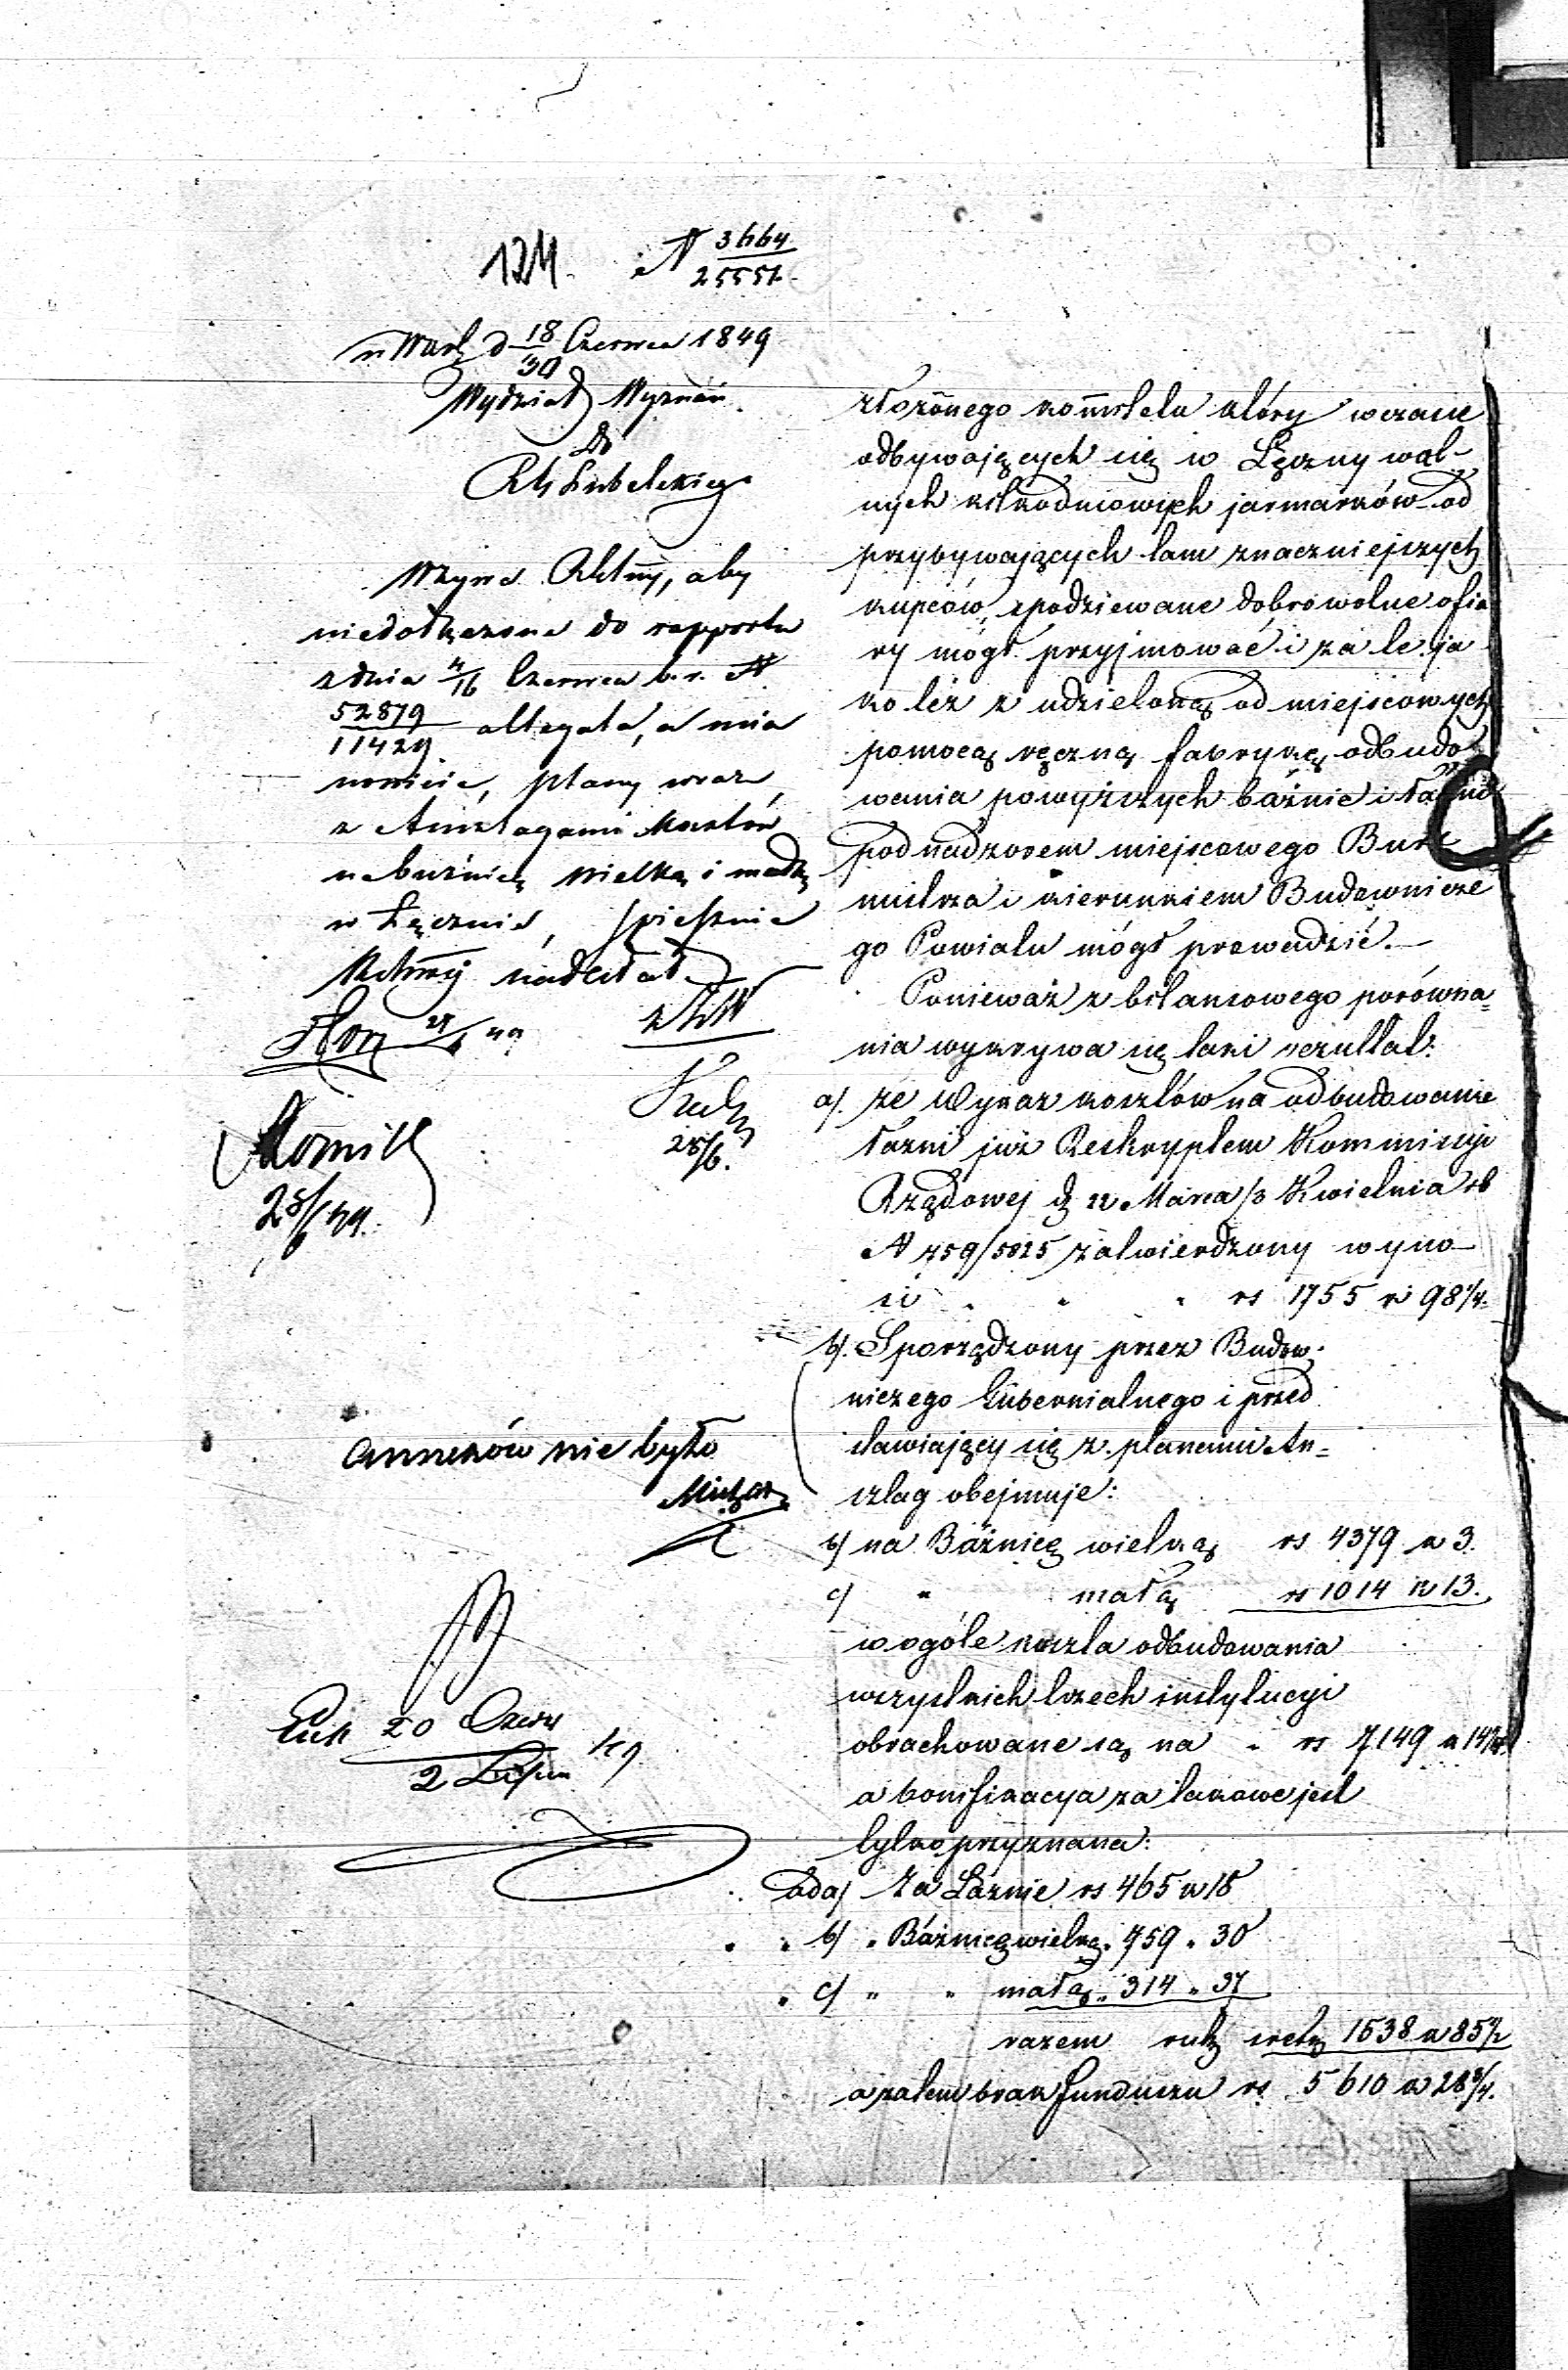 124. N 3664
25557.
w Warsz d 18/30 Czerwca 1849
Wydział Wyznań
do
Rtu Lubelskiego
Wzywa Rktny, aby
niedołączone do rapportu
z dnia 4/16 Czerwca b. r. N
52879/11429 allegata, a mia
nowicie, plany wraz
z Anszlagami kosztów
na bużnicę wielką i małą
w Łęcznie, spiesznie
nadesłał
28/6.
annexów nie było
20 Czerw
2 Lipca 49
złożonego komitetu który w czasie
odbywających się w Łęczny wal-
nych kilkodniowych jarmarków od
przybywających tam znaczniejszych
kupców, spodziewane dobrowolne ofia
ry mógł przyjmować i za te ja
ko też z udzieloną od miejscowych
pomocą ręczną fabrykę odbudo
wania powyższych bóźnic i łaźni
pod nadzorem miejscowego Bur
mistrza i kierunkiem Budownicze
go Powiatu mógł prowadzić.—
Ponieważ z bilansowego porówna=
nia wykrywa się taki rezultat:
a/. że Wykaz kosztów na odbudowanie
łazni już Reskryptem Kommissyi
Rządowej z 22 Marca/3 Kwietnia rb
N 759/5825 zatwierdzony wyno-
si " " " rs 1755 k 98 1/4.
b/. Sporządzony przez Budow.
niczego Gubernialnego i przed
stawiający się z planami An=
szlag obejmuje:
b/ na Bóżnicę wielką rs 4379 k 3.
c/ " małą rs 1014 k 13.
w ogóle koszta odbudowania
wszystkich trzech instytucyi
obrachowane są na " rs 7149 k 14 1/4
a bonifikacya za takowe jest
tylko przyznana:
ad a/ za Łaznie rs 465 k 18
" " b/ " Bóżnicę wielką " 759 " 30
" c/ " " małą " 314 " 37
razem rub sreb 1538 k 85 1/2
a zatem brak funduszu rs 5610 k 28 3/4.